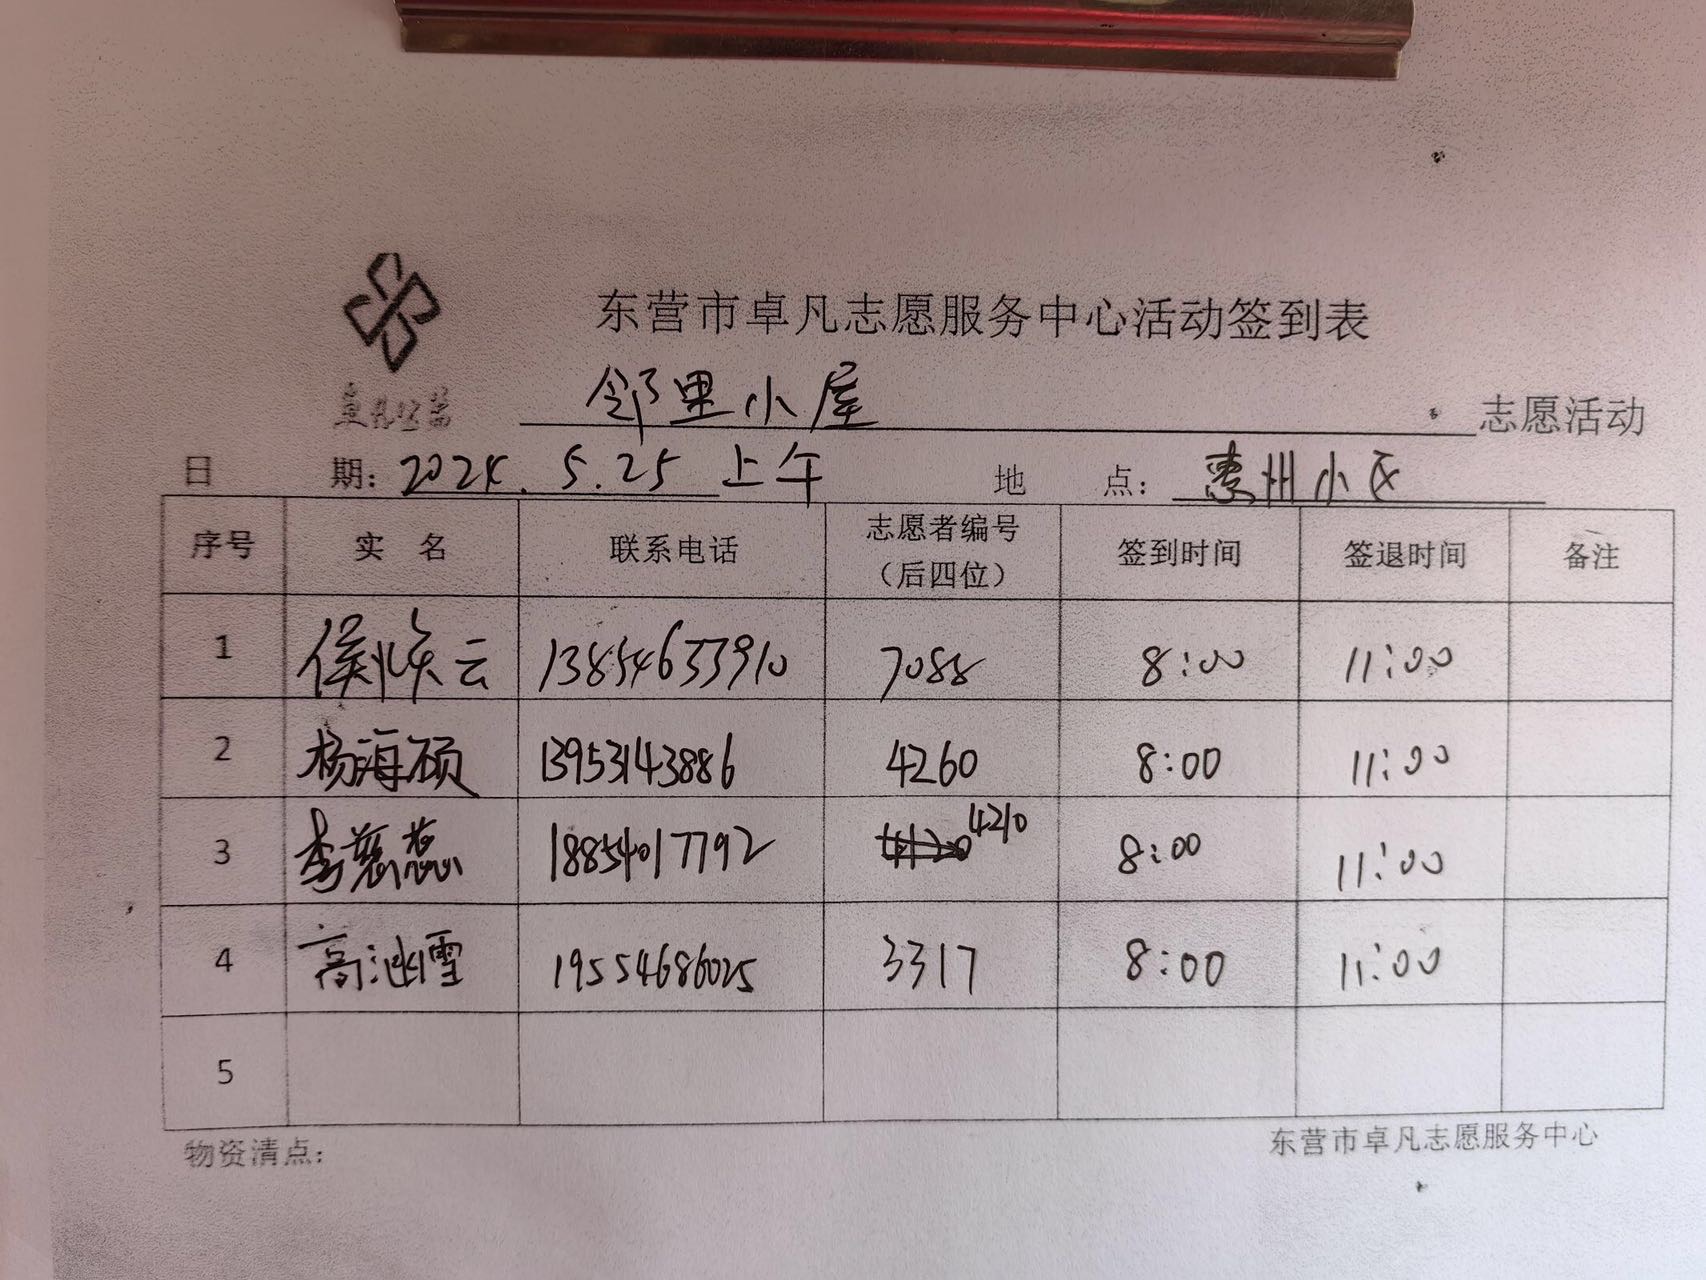 东营市卓凡志愿服务中心活动签到表
卓凡公益
邻里小屋 志愿活动
日 期: 2024.5.25 上午 地 点: 惠州小区
序号 实 名 联系电话 志愿者编号（后四位） 签到时间 签退时间 备注
1 侯临云 13854633910 7088 8:00 11:00
2 杨海硕 13953143886 4260 8:00 11:00
3 李蕊 18854017792 4210 8:00 11:00
4 高雪 19554686025 3317 8:00 11:00
5
物资清点:
东营市卓凡志愿服务中心